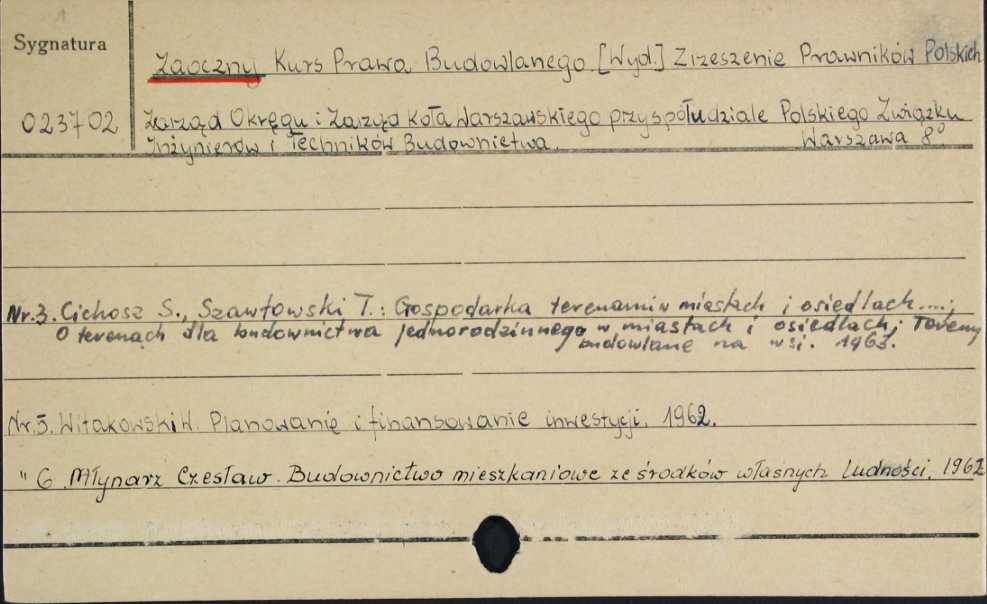 Sygnatura
Zaoczny Kurs Prawa Budowlanego. [Wyd.] Zrzeszenie Prawników Polskich
023702
Zarząd Okręgu i Zarząd Koła Warszawskiego przy spółudziale Polskiego Związku
Inżynierów i Techników Budownictwa. Warszawa 8°.
Nr.3. Cichosz S., Szawłowski T.: Gospodarka terenami w miastach i osiedlach....;
O terenach dla budownictwa jednorodzinnego w miastach i osiedlach; Tereny
budowlane na wsi. 1963.
Nr.5. Witakowski W. Planowanie i finansowanie inwestycji. 1962.
" 6. Młynarz Czesław. Budownictwo mieszkaniowe ze środków własnych ludności. 1962